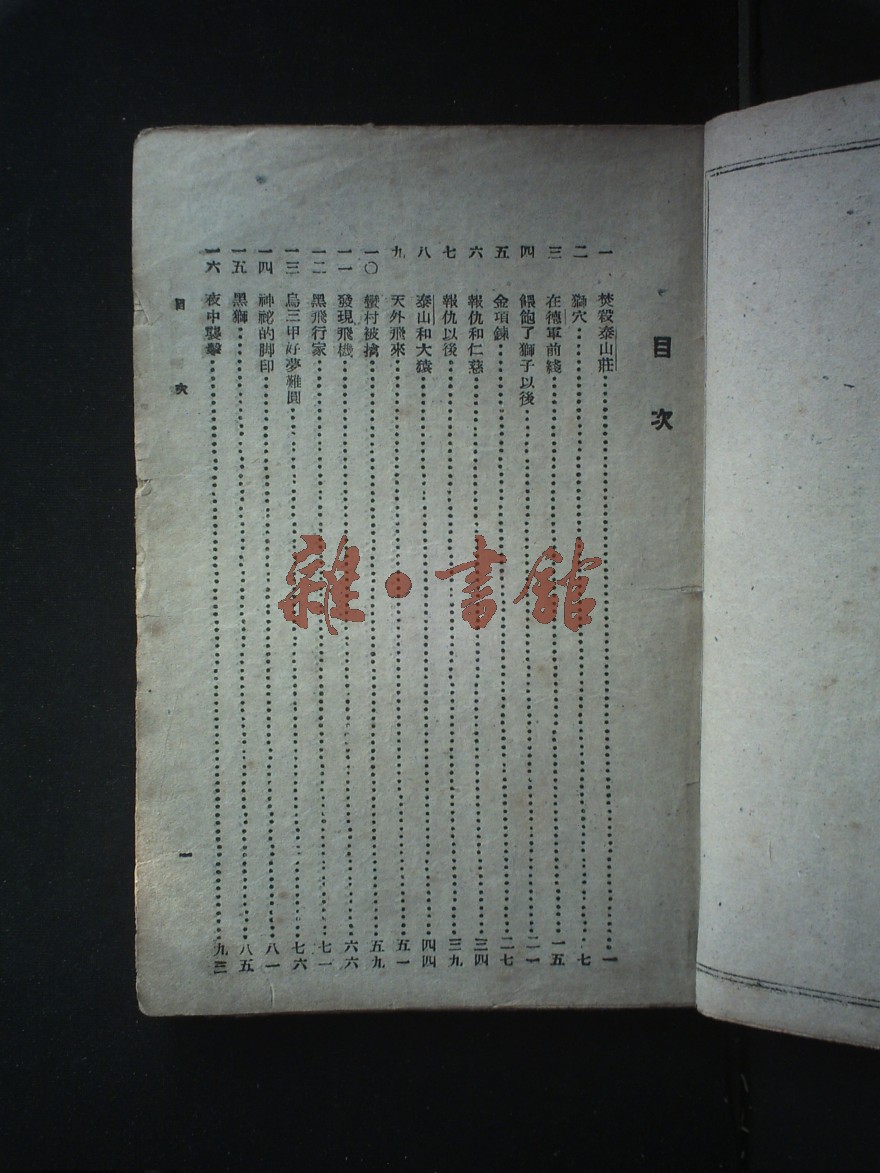 目次
一 焚毀泰山莊 一
二 獅穴 七
三 在德軍前綫 一五
四 餵飽了獅子以後 二一
五 金項鍊 二七
六 報仇和仁慈 三四
七 報仇以後 三九
八 泰山和大猿 四四
九 天外飛來 五一
一〇 蠻村被擒 五九
一一 發現飛機 六六
一二 黑飛行家 七一
一三 烏三甲好夢難圓 七六
一四 神祕的脚印 八一
一五 黑獅 八五
一六 夜中襲擊 九三
目次 一
雜·書館